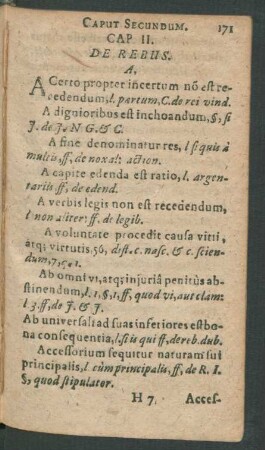 CAPUT SECUNDUM. 171
CAP II.
DE REBUS.
A.
A Certo propter incertum nō est re-
cedendum, l. partum, C. de rei vind.
A dignioribus est inchoandum, §, si
J. de J. N G. & C.
A fine denominatur res, l si quis à
multis, ff, de noxal: action.
A capite edenda est ratio, l. argen-
tariis ff, de edend.
A verbis legis non est recedendum,
l non aliter: ff. de legib.
A voluntate procedit causa vitii,
atq; virtutis, 56, dist. c. nasc. & c. scien-
dum, 7, 5. 1.
Ab omni vi, atq; injuriâ penitus ab-
stinendum, l. 1, §, 1, ff, quod vi, aut clam:
l 3. ff, de J. & J.
Ab universali ad suas inferiores est bo-
na consequentia, l. si is qui ff, de reb. dub.
Accessorium sequitur naturam sui
principalis, l cùm principalis, ff, de R. I.
§, quod stipulator.
H 7. Acces-